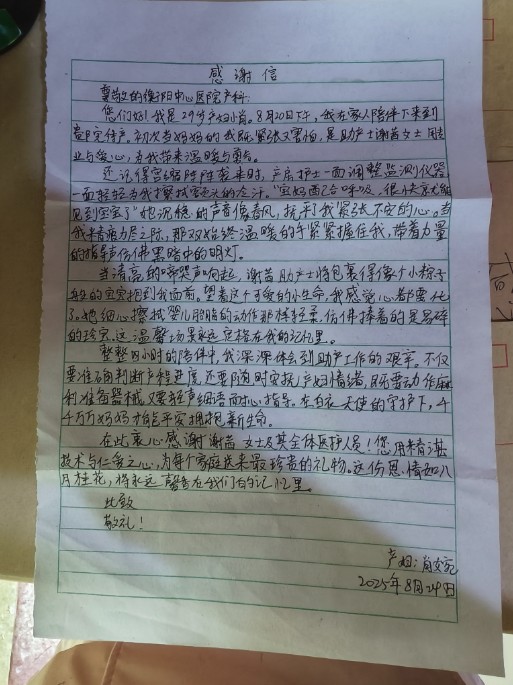 感谢信
尊敬的衡阳中心医院产科:
您们好!我是29岁产妇小肖。8月20日下午,我在家人陪伴下来到
贵院待产。初次当妈妈的我既紧张又害怕,是助产士谢茜女士用专
业与爱心,为我带来温暖与勇气。
还记得宫缩阵阵袭来时,产房护士一面调整监测仪器
一面轻轻为我擦拭额头的冷汗。"宝妈配合呼吸,很快就能
见到宝宝了"她沉稳的声音像春风,抚平了我紧张不安的心。当
我精疲力尽之际,那双始终温暖的手紧紧握住我,带着力量
的指导声仿佛黑暗中的明灯。
当清亮的啼哭声响起,谢茜助产士将包裹得像个小粽子
般的宝宝抱到我面前。望着这个可爱的小生命,我感觉心都要化
了。她细心擦拭婴儿胎脂的动作那样轻柔,仿佛捧着的是易碎
的珍宝。这温馨场景永远定格在我的记忆里。
整整四小时的陪伴中,我深深体会到助产工作的艰辛。不仅
要准确判断产程进度,还要随时安抚产妇情绪,既需动作麻
利准备器械,又要轻声细语耐心指导。在白衣天使的守护下,千
千万万妈妈才能平安拥抱新生命。
在此衷心感谢谢茜女士及其全体医护人员!您用精湛
技术与仁爱之心,为每个家庭送来最珍贵的礼物。这份恩情如八
月桂花,将永远馨香在我们的记忆里。
此致
敬礼!
产妇:肖
2025年8月24日